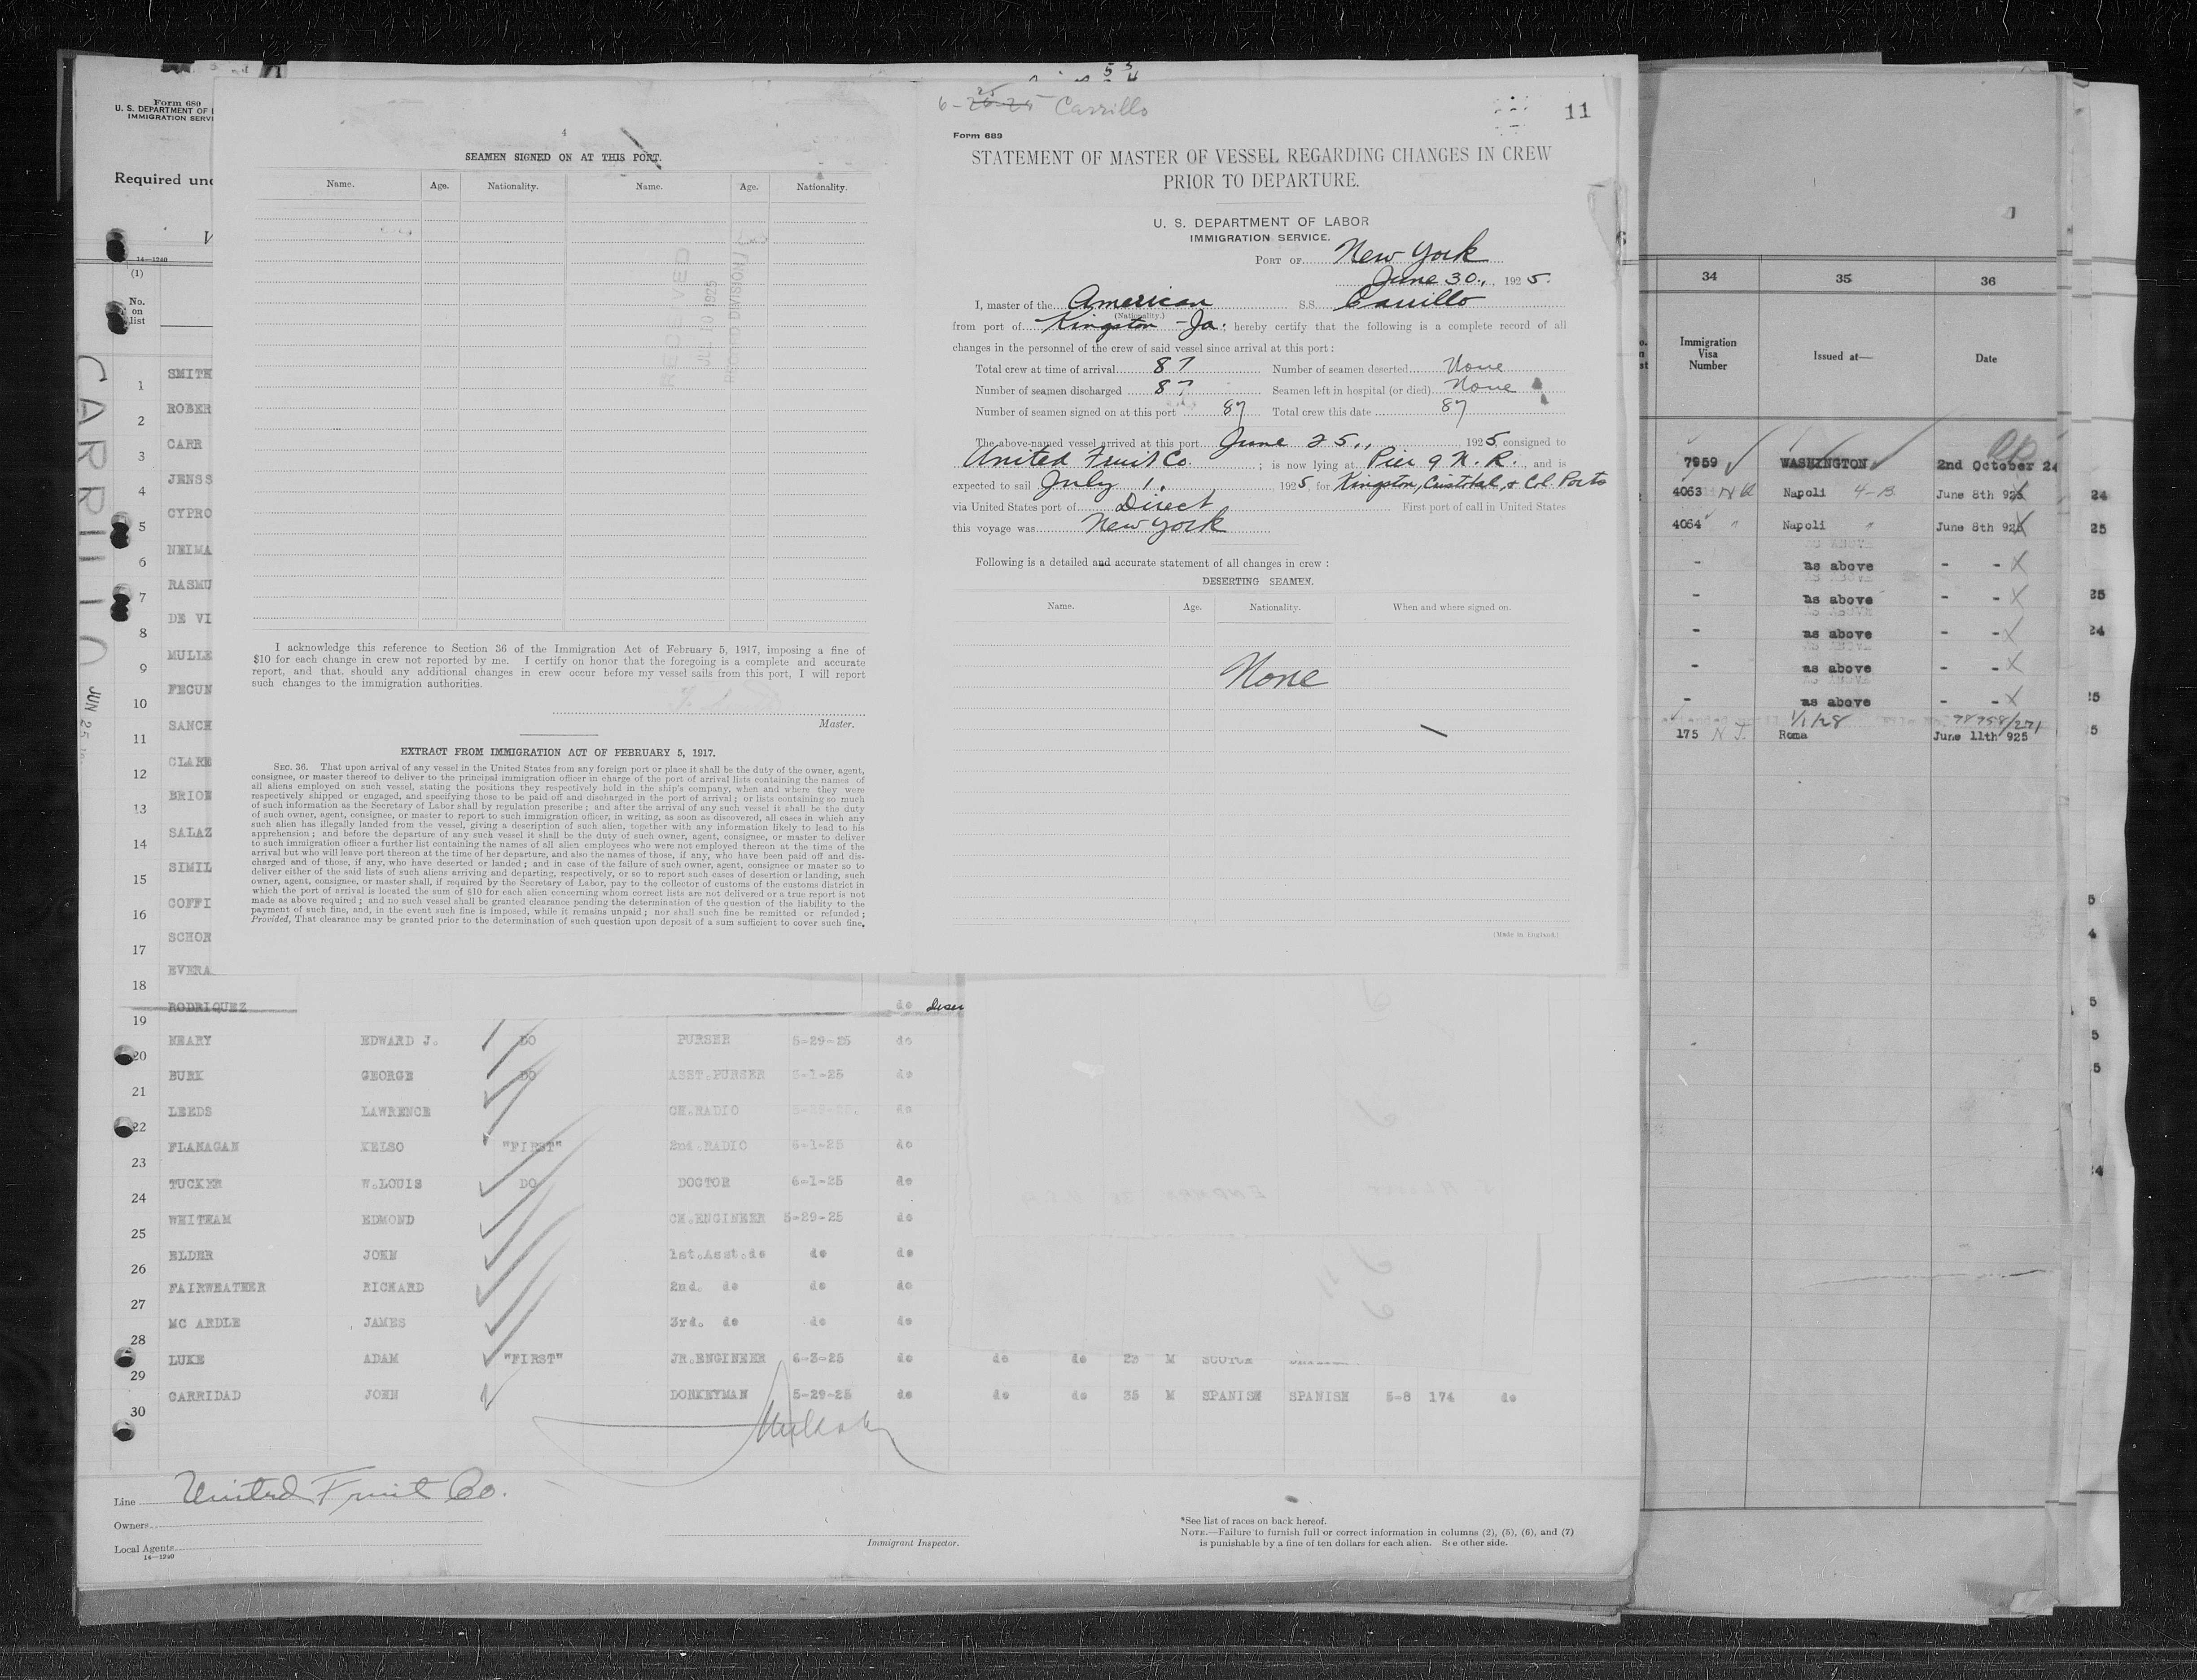 Form 680
U. S. DEPARTMENT OF
IMMIGRATION SERV
Required und
14—1240
(1)
No.
on
list
CARRILLO JUN 25
1 SMITH
2 ROBER
3 CARR
4 JENSS
5 CYPRO
6 NEIMA
7 RASMU
8 DE VI
9 MULLE
10 FECUN
11 SANCH
12 CLARE
13 BRION
14 SALAZ
15 SIMIL
16 COFFI
17 SCHOR
18 EVERA
19 RODRIQUEZ do
20 NEARY EDWARD J. DO PURSER 5-29-25 do
21 BURK GEORGE DO ASST.PURSER 6-1-25 do
22 LEEDS LAWRENCE CH.RADIO 5-29-25. do
23 FLANAGAN KELSO "FIRST" 2nd.RADIO 6-1-25 do
24 TUCKER W.LOUIS DO DOCTOR 6-1-25 do
25 WHITHAM EDMOND CH.ENGINEER 5-29-25 do
26 ELDER JOHN 1st.Asst.do do do
27 FAIRWEATHER RICHARD 2nd. do do do
28 MC ARDLE JAMES 3rd. do do do
29 LUKE ADAM "FIRST" JR.ENGINEER 6-3-25 do do do 23 M SCOTCH
30 CARRIDAD JOHN DONKEYMAN 5-29-25 do do do 35 M SPANISH SPANISH 5-8 174 do
Line United Fruit Co.
Owners
Local Agents
14—1240
Immigrant Inspector.
*See list of races on back hereof.
NOTE.—Failure to furnish full or correct information in columns (2), (5), (6), and (7)
is punishable by a fine of ten dollars for each alien. See other side.
4
SEAMEN SIGNED ON AT THIS PORT.
Name. Age. Nationality. Name. Age. Nationality.
RECEIVED
JUL 10 1925
RECORD DIVISION
I acknowledge this reference to Section 36 of the Immigration Act of February 5, 1917, imposing a fine of
$10 for each change in crew not reported by me. I certify on honor that the foregoing is a complete and accurate
report, and that, should any additional changes in crew occur before my vessel sails from this port, I will report
such changes to the immigration authorities.
Master.
EXTRACT FROM IMMIGRATION ACT OF FEBRUARY 5, 1917.
SEC. 36. That upon arrival of any vessel in the United States from any foreign port or place it shall be the duty of the owner, agent,
consignee, or master thereof to deliver to the principal immigration officer in charge of the port of arrival lists containing the names of
all aliens employed on such vessel, stating the positions they respectively hold in the ship's company, when and where they were
respectively shipped or engaged, and specifying those to be paid off and discharged in the port of arrival; or lists containing so much
of such information as the Secretary of Labor shall by regulation prescribe; and after the arrival of any such vessel it shall be the duty
of such owner, agent, consignee, or master to report to such immigration officer, in writing, as soon as discovered, all cases in which any
such alien has illegally landed from the vessel, giving a description of such alien, together with any information likely to lead to his
apprehension; and before the departure of any such vessel it shall be the duty of such owner, agent, consignee, or master to deliver
to such immigration officer a further list containing the names of all alien employees who were not employed thereon at the time of the
arrival but who will leave port thereon at the time of her departure, and also the names of those, if any, who have been paid off and dis-
charged and of those, if any, who have deserted or landed; and in case of the failure of such owner, agent, consignee or master so to
deliver either of the said lists of such aliens arriving and departing, respectively, or so to report such cases of desertion or landing, such
owner, agent, consignee, or master shall, if required by the Secretary of Labor, pay to the collector of customs of the customs district in
which the port of arrival is located the sum of $10 for each alien concerning whom correct lists are not delivered or a true report is not
made as above required; and no such vessel shall be granted clearance pending the determination of the question of the liability to the
payment of such fine, and, in the event such fine is imposed, while it remains unpaid; nor shall such fine be remitted or refunded;
Provided, That clearance may be granted prior to the determination of such question upon deposit of a sum sufficient to cover such fine,
6-25 Carrillo
11
Form 689
STATEMENT OF MASTER OF VESSEL REGARDING CHANGES IN CREW
PRIOR TO DEPARTURE.
U. S. DEPARTMENT OF LABOR
IMMIGRATION SERVICE.
PORT OF New York
June 30., 1925.
I, master of the American S.S. Carrillo
(Nationality.)
from port of Kingston - Ja. hereby certify that the following is a complete record of all
changes in the personnel of the crew of said vessel since arrival at this port:
Total crew at time of arrival 87 Number of seamen deserted None
Number of seamen discharged 87 Seamen left in hospital (or died) None
Number of seamen signed on at this port 87 Total crew this date 87
The above-named vessel arrived at this port June 25., 1925 consigned to
United Fruit Co. ; is now lying at Pier 9 N. R. , and is
expected to sail July 1. , 1925, for Kingston, Cristobal, & Col. Ports
via United States port of Direct First port of call in United States
this voyage was New York
Following is a detailed and accurate statement of all changes in crew:
DESERTING SEAMEN.
Name. Age. Nationality. When and where signed on.
None
(Made in England.)
34 35 36
Immigration
Visa
Number
Issued at—
Date
7959 WASHINGTON 2nd October 24
4063 Napoli 4-B June 8th 925
4064 " Napoli " June 8th 925
- as above - -
- as above - -
- as above - -
- as above - -
- as above - -
1/1/28 98758/271
175 N J. Roma June 11th 925
24
25
25
24
5
5
5
4
5
5
5
4